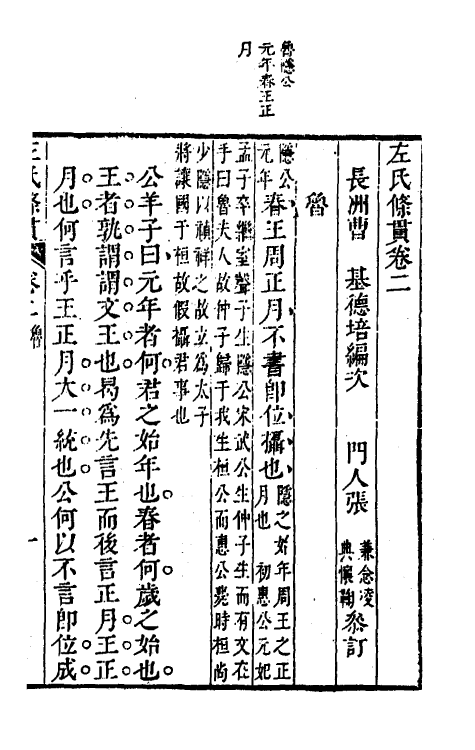 魯隱公
元年春王正
月
左氏條貫卷二
長洲曹　基德培編次　　門人張　兼念凌
典懷鞠　叅訂
魯
隱公
元年
春王周正月不書卽位攝也
隱之始年周王之正
月也　初惠公元妃
孟子卒繼室聲子生隱公宋武公生仲子生而有文在
手曰魯夫人故仲子歸于我生桓公而惠公薨時桓尚
少隱以禎祥之故立爲太子
將讓國于桓故假攝君事也
公羊子曰元年者何君之始年也春者何歲之始也
王者孰謂謂文王也曷爲先言王而後言正月王正
月也何言乎王正月大一統也公何以不言卽位成
左氏條貫　卷二　魯　一